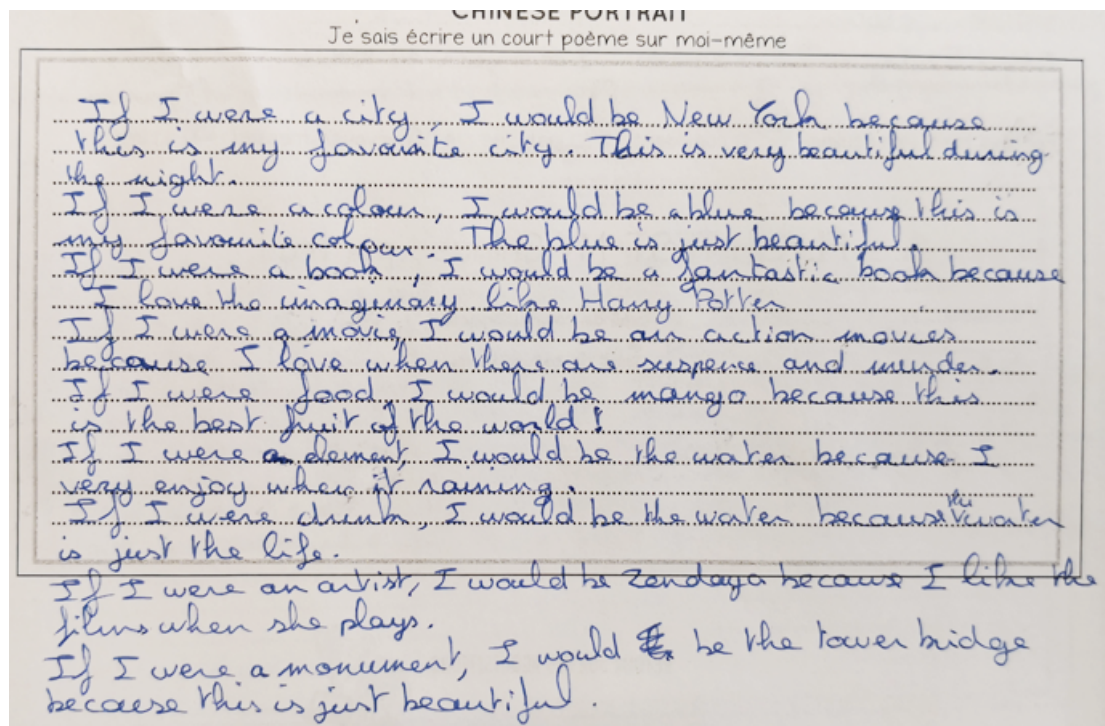 CHINESE PORTRAIT
Je sais écrire un court poème sur moi-même
If I were a city, I would be New York because
this is my favourite city. This is very beautiful during
the night.
If I were a colour, I would be a blue because this is
my favourite colour. The blue is just beautiful.
If I were a book, I would be a fantastic book because
I love the imaginary like Harry Potter
If I were a movie, I would be an action movies
because I love when there are suspence and murder.
If I were food, I would be mango because this
is the best fruit of the world!
If I were a element, I would be the water because I
very enjoy when it raining.
If I were drink, I would be the water because the water
is just the life.
If I were an artist, I would be Zendaya because I like the
films when she plays.
If I were a monument, I would be the tower bridge
because this is just beautiful.